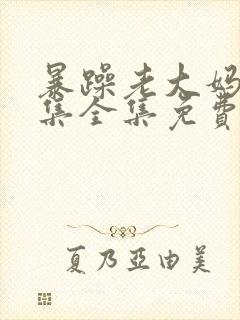 暴躁老大妈
集全集免费
夏乃亞由美